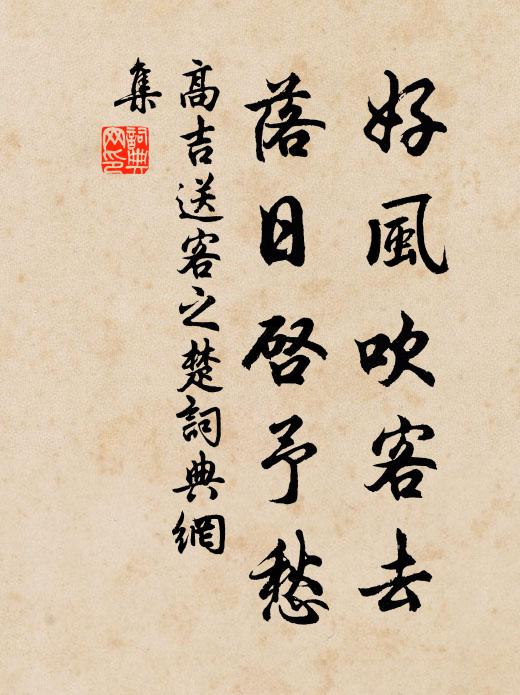 好風吹客去
落日啓予愁
高吉送客之楚詞典網
集
詞典
网印